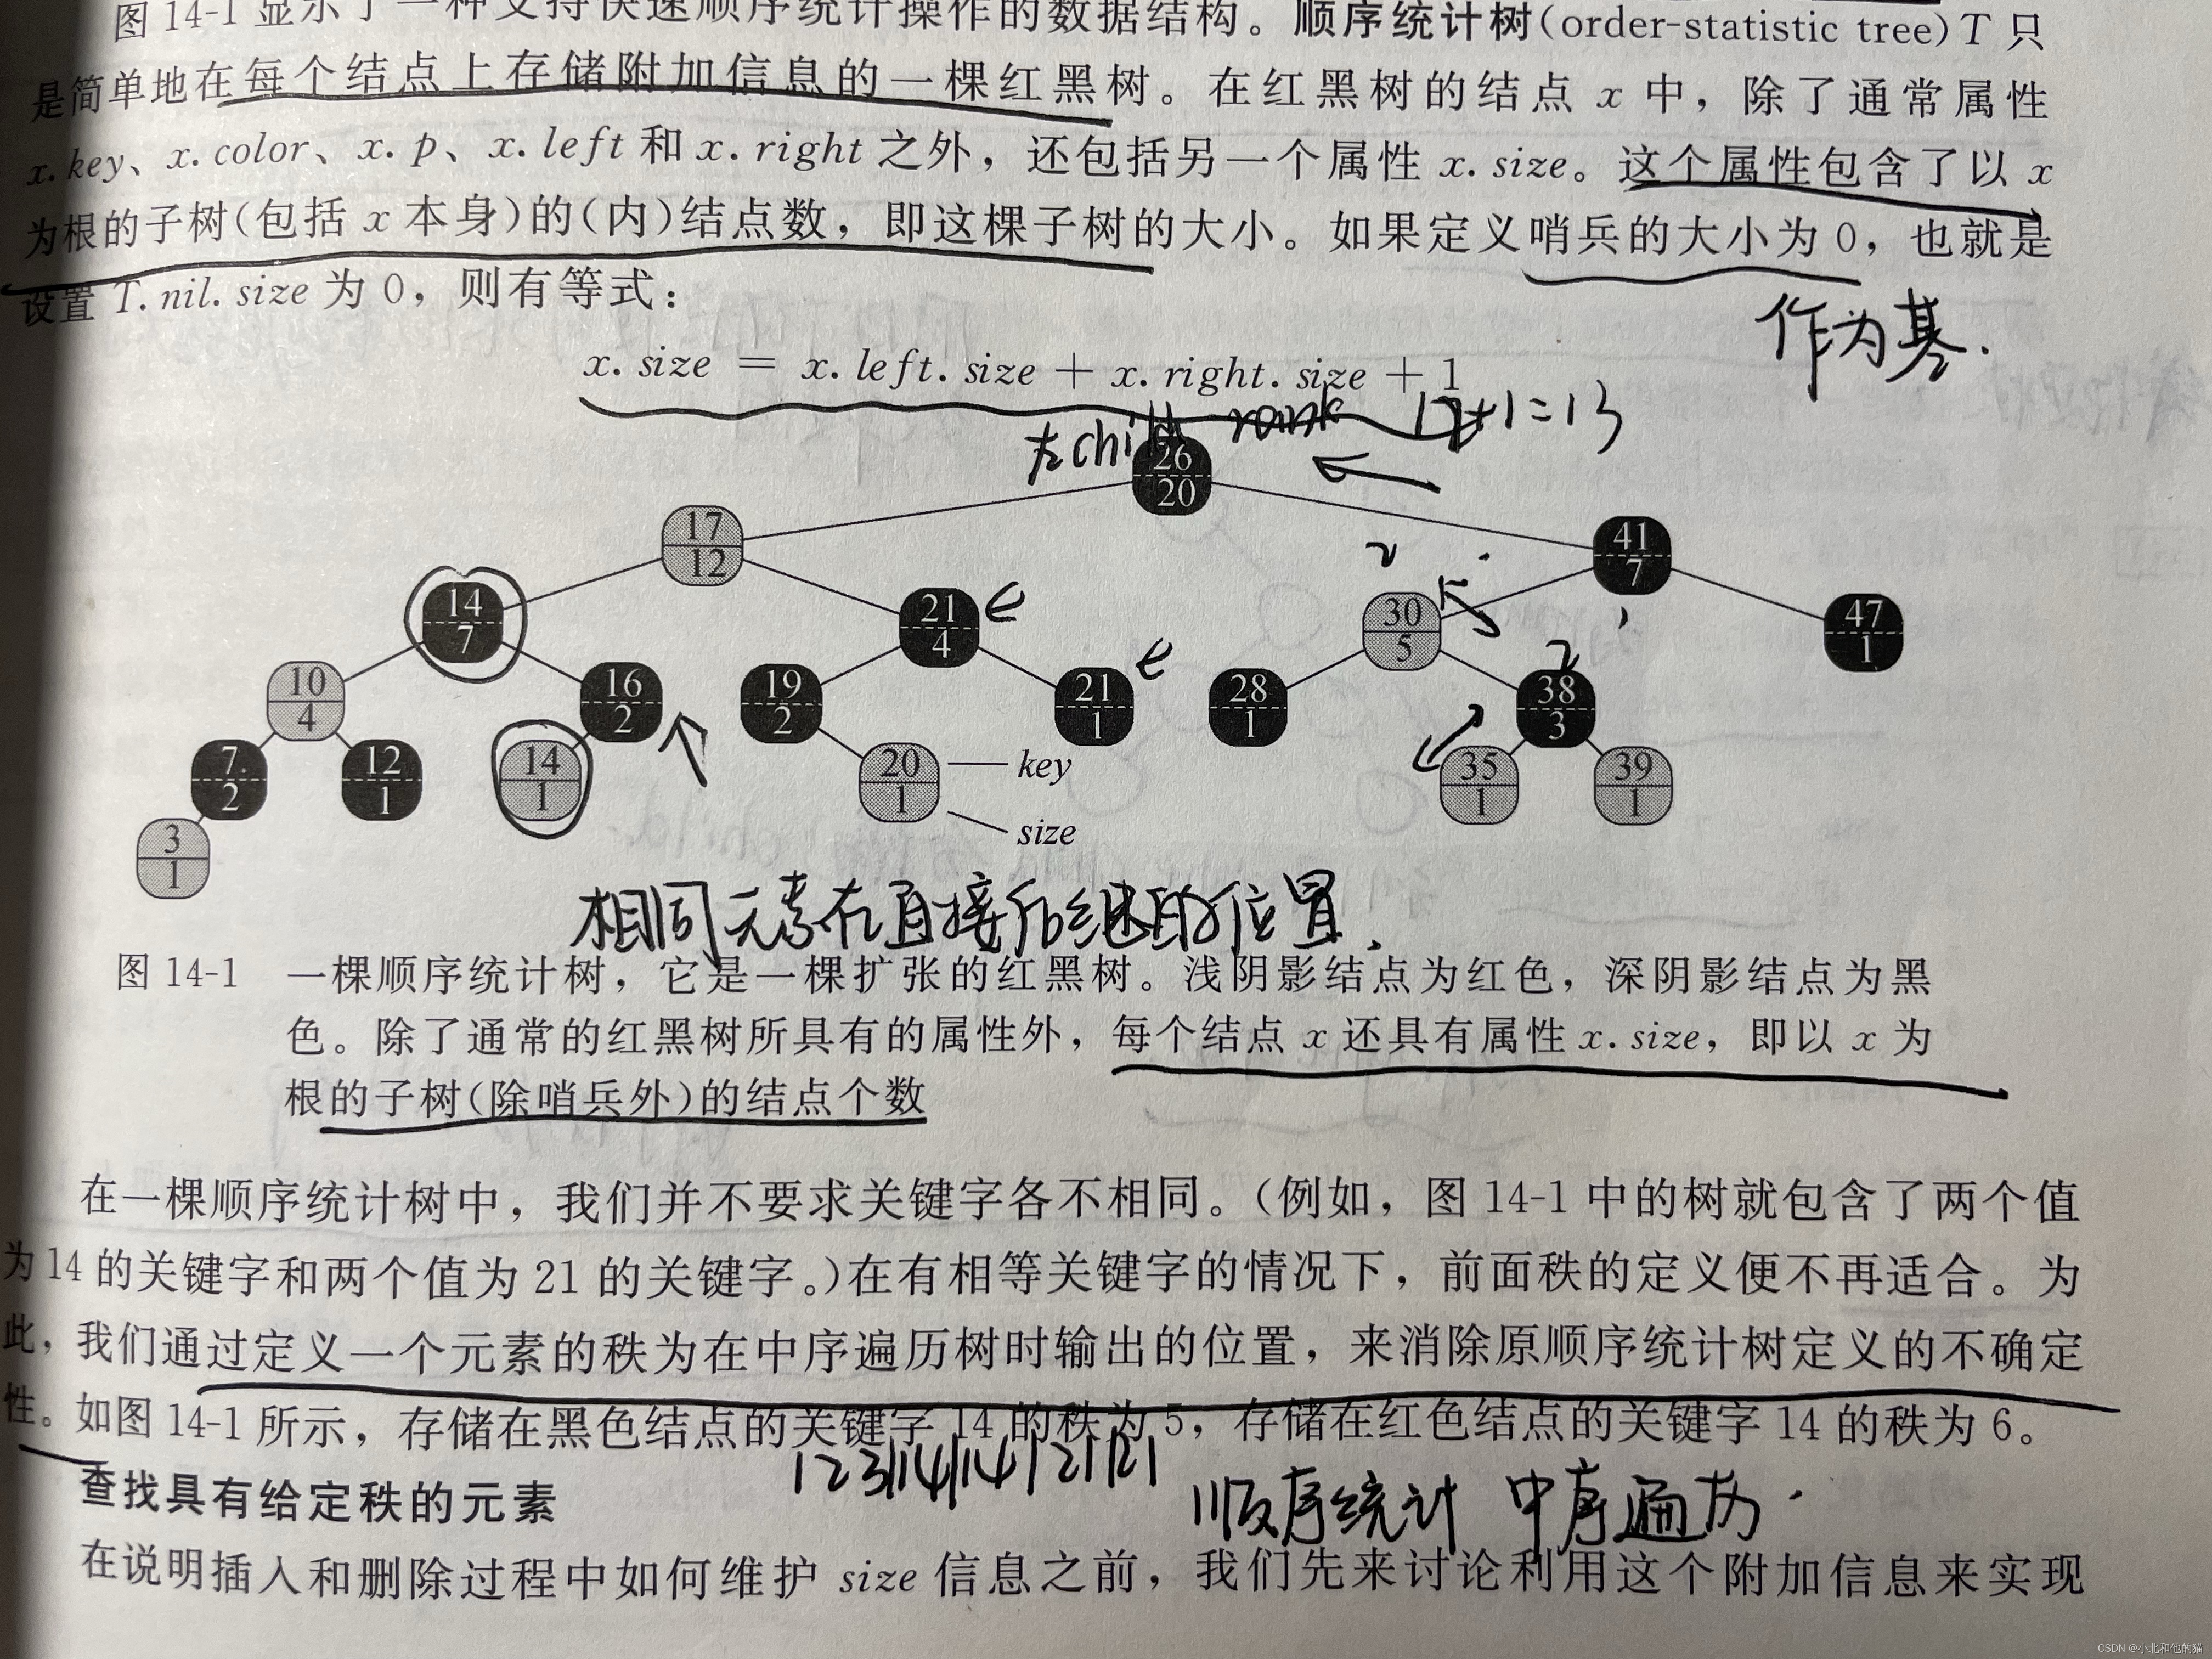 图 14-1 显示了一种支持快速顺序统计操作的数据结构。顺序统计树(order-statistic tree)T 只
是简单地在每个结点上存储附加信息的一棵红黑树。在红黑树的结点 x 中，除了通常属性
x.key、x.color、x.p、x.left 和 x.right 之外，还包括另一个属性 x.size。这个属性包含了以 x
为根的子树(包括 x 本身)的(内)结点数，即这棵子树的大小。如果定义哨兵的大小为 0，也就是
设置 T.nil.size 为 0，则有等式：
作为基.
x.size = x.left.size + x.right.size + 1
左child rank 12+1=13
26
20
17
12
41
7
14
7
21
4
30
5
47
1
10
4
16
2
19
2
21
1
28
1
38
3
7
2
12
1
14
1
20
1
35
1
39
1
key
size
3
1
相同元素在直接后继的位置.
图 14-1 一棵顺序统计树，它是一棵扩张的红黑树。浅阴影结点为红色，深阴影结点为黑
色。除了通常的红黑树所具有的属性外，每个结点 x 还具有属性 x.size，即以 x 为
根的子树(除哨兵外)的结点个数
在一棵顺序统计树中，我们并不要求关键字各不相同。(例如，图 14-1 中的树就包含了两个值
为 14 的关键字和两个值为 21 的关键字。)在有相等关键字的情况下，前面秩的定义便不再适合。为
此，我们通过定义一个元素的秩为在中序遍历树时输出的位置，来消除原顺序统计树定义的不确定
性。如图 14-1 所示，存储在黑色结点的关键字 14 的秩为 5，存储在红色结点的关键字 14 的秩为 6。
123|14|14|21|21
顺序统计 中序遍历.
查找具有给定秩的元素
在说明插入和删除过程中如何维护 size 信息之前，我们先来讨论利用这个附加信息来实现
CSDN @小北和他的猫